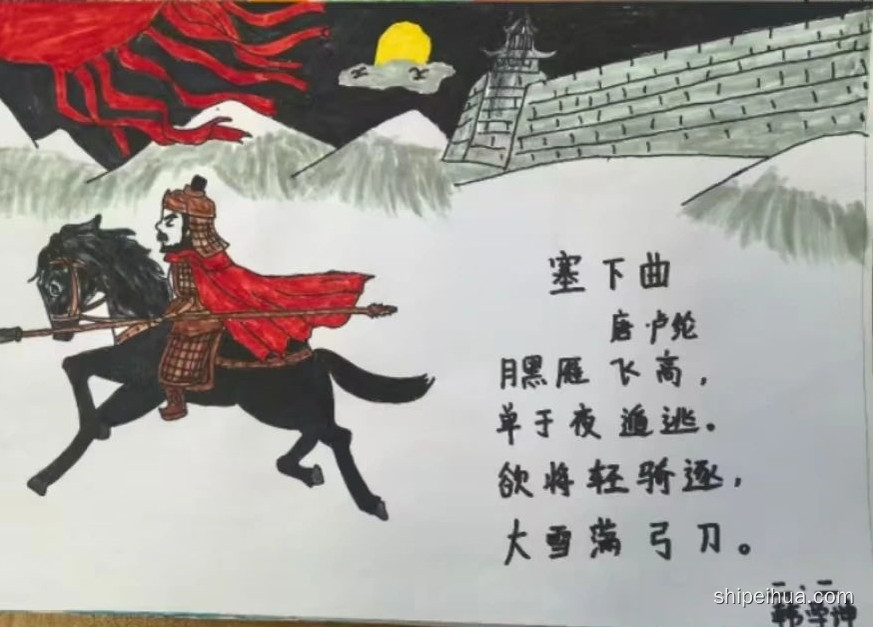 塞下曲
唐·卢纶
月黑雁飞高，
单于夜遁逃。
欲将轻骑逐，
大雪满弓刀。
shipeihua.com